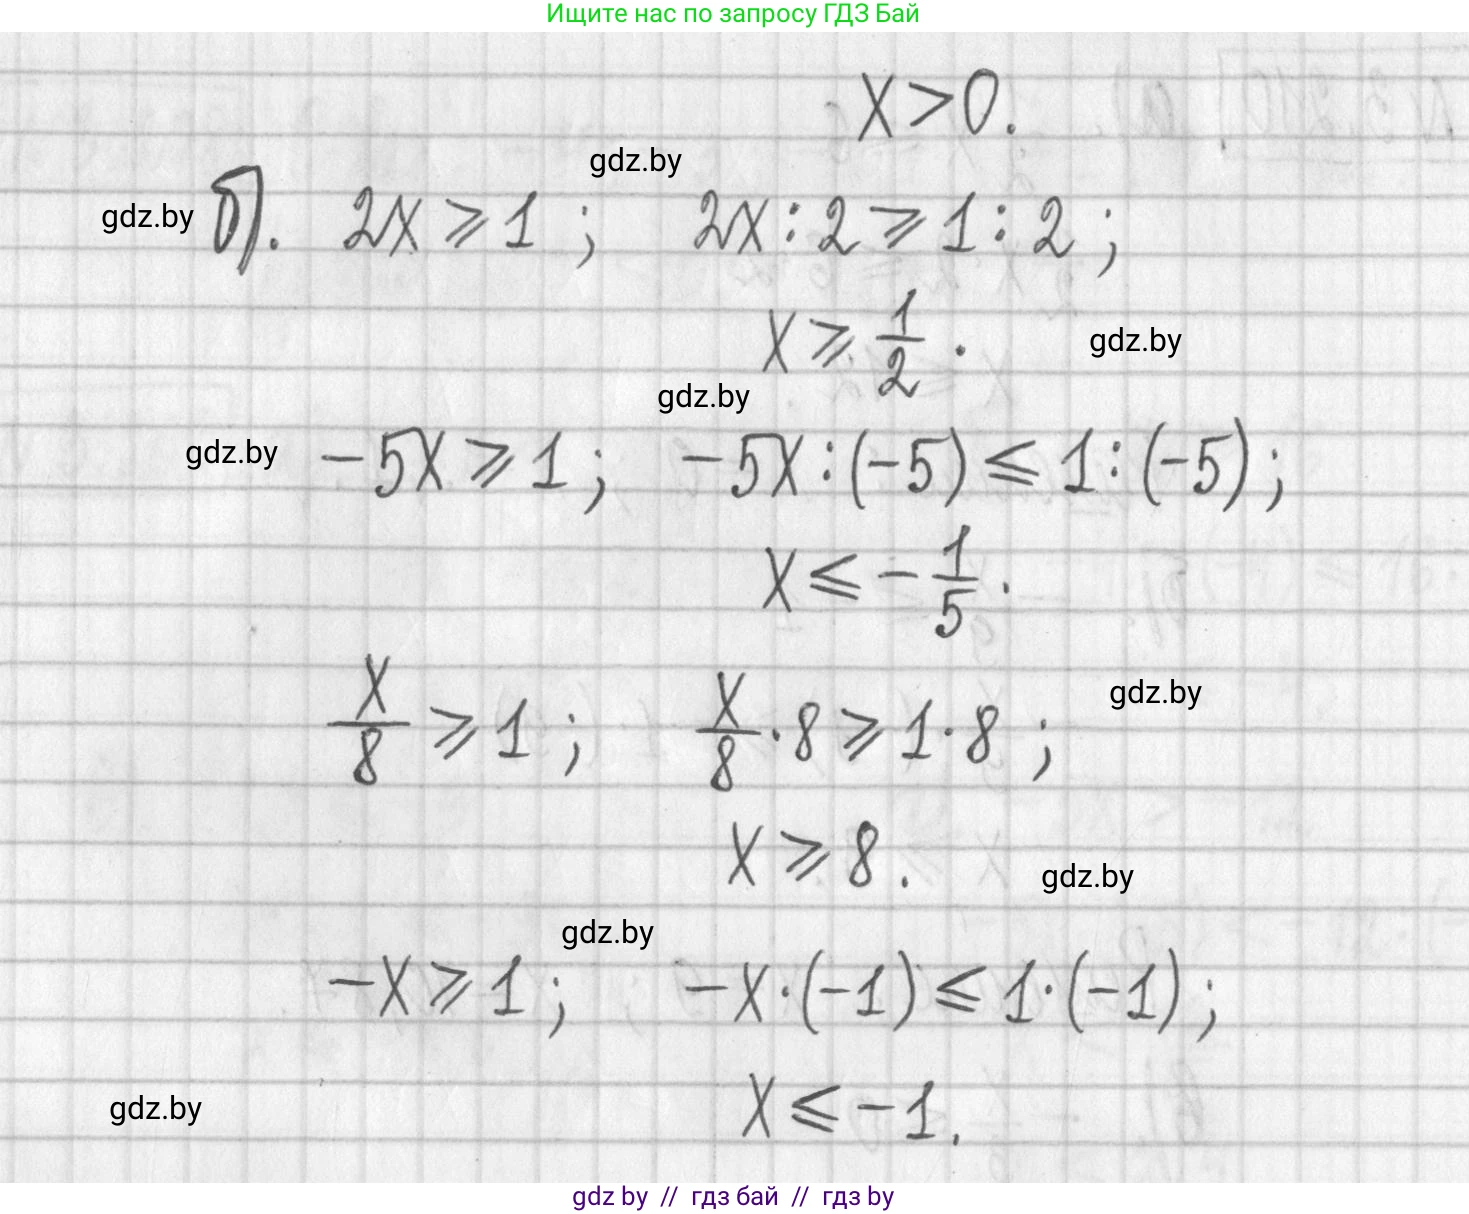 Ищите нас по запросу ГДЗ Бай
x > 0.
gdz.by
gdz.by
б). 2x ⩾ 1 ; 2x : 2 ⩾ 1 : 2 ;
x ⩾ 1/2 .
gdz.by
gdz.by
gdz.by
-5x ⩾ 1 ; -5x : (-5) ⩽ 1 : (-5) ;
x ⩽ -1/5 .
x/8 ⩾ 1 ; x/8 · 8 ⩾ 1 · 8 ;
gdz.by
x ⩾ 8 .
gdz.by
gdz.by
-x ⩾ 1 ; -x · (-1) ⩽ 1 · (-1) ;
x ⩽ -1.
gdz.by
gdz by // гдз бай // гдз by